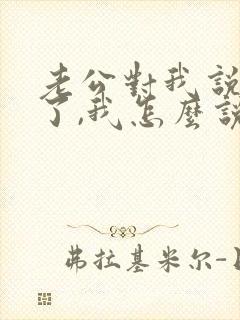 老公對我說
了,我怎麼說
弗拉基米尔-